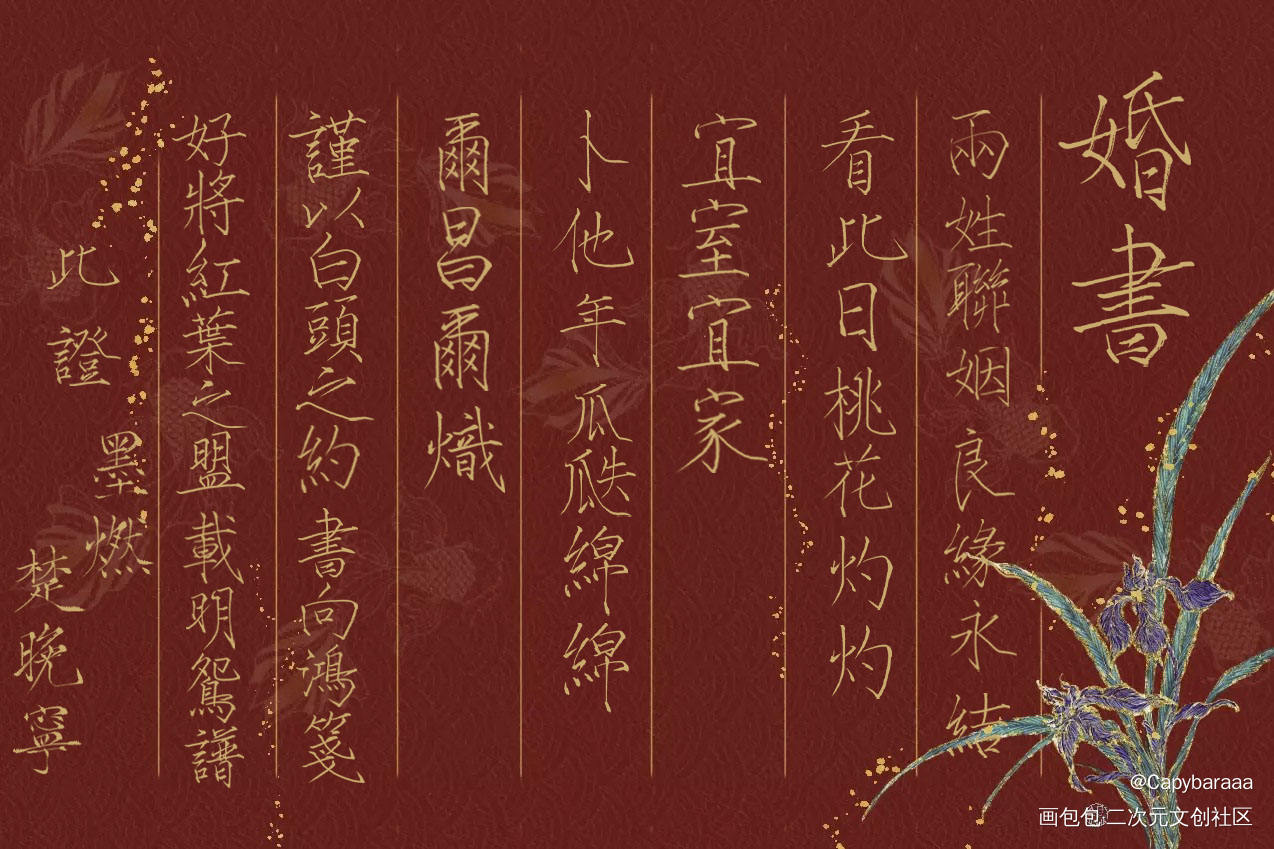 婚書
兩姓聯姻良緣永結
看此日桃花灼灼
宜室宜家
卜他年瓜瓞綿綿
爾昌爾熾
謹以白頭之約書向鴻箋
好將紅葉之盟載明鴛譜
此證
墨燃
楚晚寧
@Capybaraaa
画包包 二次元文创社区